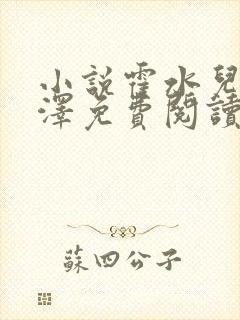 小說霍水兒
澤免費閱讀
蘇四公子